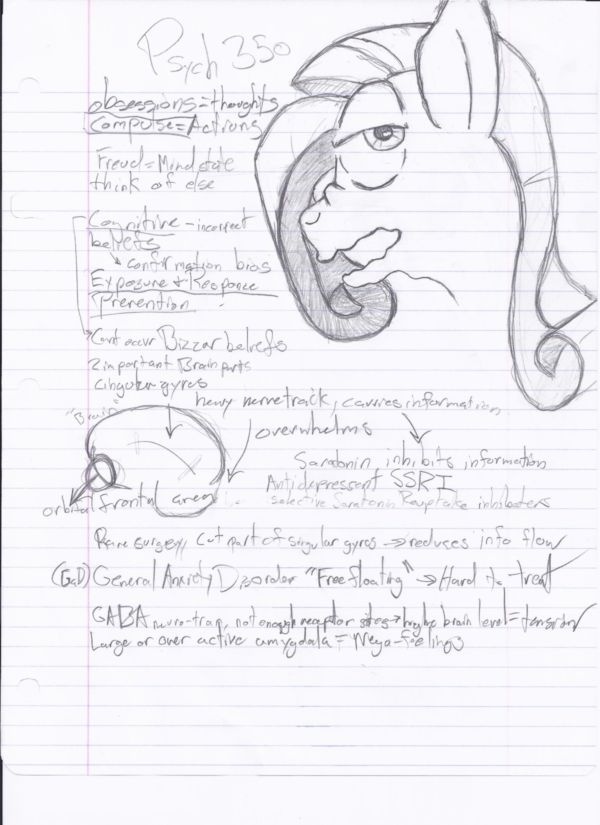 Psych 350
obsessions = thoughts
Compulse = Actions
Freud = Mind state
think of else
Cognitive - incorrect
beliefs
confirmation bias
Exposure + Response
Prevention
Cant occur Bizzar beliefs
2 important Brain parts
cingular gyros
heavy nerve track, carries information
"Brain"
overwhelms
Saratonin inhibits information
Antidepressent SSRI
selective Saratonin Reuptake inhibaters
orbital frontal area
Rare surgery, Cut part of singular gyros → reduces info flow
(GaD) General Anxiety Disorder "Free floating" → Hard to treat
GABA neuro-tran, not enough receptor sites → brain level = tension
Large or over active amygdala = Nega-feelings